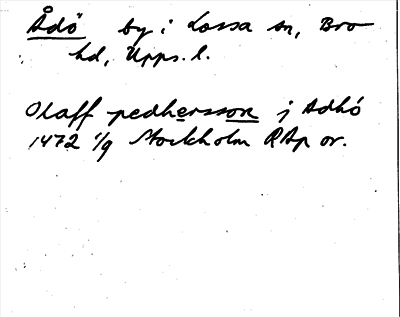 Ådö by i Låssa sn, Bro
hd, Upps. l.
Olaff pedhersson j Adhö
1472 1/9 Stockholm RAp or.